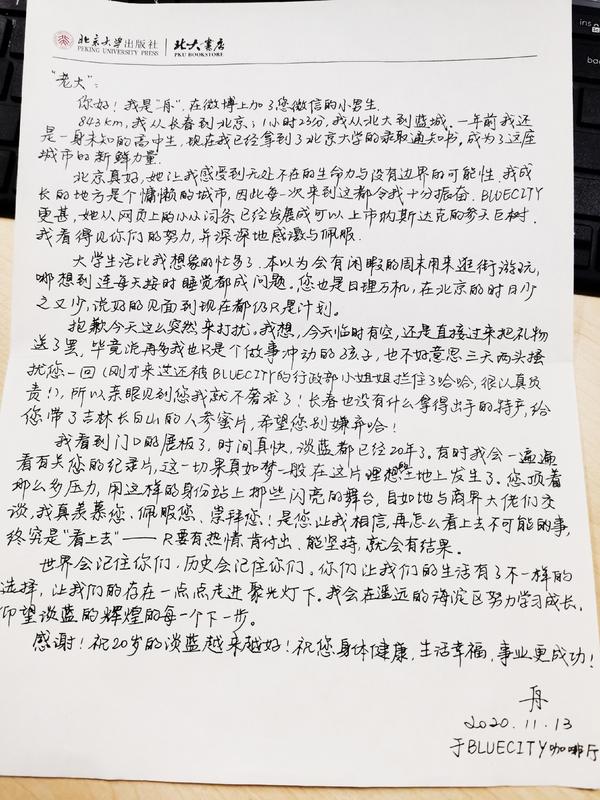 北京大学出版社 北大书店
PEKING UNIVERSITY PRESS PKU BOOKSTORE
"老大":
你好！我是"舟"，在微博上加了您微信的小男生。
843km，我从长春到北京；1小时23分，我从北大到蓝城。一年前我还
是一身未知的高中生，现在我已经拿到了北京大学的录取通知书，成为了这座
城市的新鲜力量。
北京真好，她让我感受到无处不在的生命力与没有边界的可能性。我成
长的地方是个慵懒的城市，因此每一次来到这都令我十分振奋。BLUECITY
更甚，她从网页上的小小词条已经发展成可以上市纳斯达克的参天巨树。
我看得见你们的努力，并深深地感激与佩服。
大学生活比我想象的忙多了。本以为会有闲暇的周末用来逛街游玩，
哪想到连每天按时睡觉都成问题。您也是日理万机，在北京的时日少
之又少，说好的见面到现在都仍只是计划。
抱歉今天这么突然来打扰。我想，今天临时有空，还是直接过来把礼物
送了罢，毕竟说再多我也只是个做事冲动的孩子，也不好意思三天两头搔
扰您一回（刚才来过还被BLUECITY的行政部小姐姐拦住了哈哈，很认真负
责！），所以亲眼见到您我就不奢求了！长春也没有什么拿得出手的特产，给
您带了吉林长白山的人参蜜片，希望您别嫌弃哈！
我看到门口的展板了，时间真快，淡蓝都已经20年了。有时我会一遍遍
看有关您的纪录片，这一切果真如梦一般在这片理想土地上发生了。您顶着
那么多压力，用这样的身份站上那些闪亮的舞台，自如地与商界大佬们交
谈，我真羡慕您、佩服您、崇拜您！是您让我相信，再怎么看上去不可能的事，
终究是"看上去"——只要有热情、肯付出、能坚持，就会有结果。
世界会记住你们，历史会记住你们。你们让我们的生活有了不一样的
选择，让我们的存在一点点走进聚光灯下。我会在遥远的海淀区努力学习成长，
仰望淡蓝的辉煌的每一个下一步。
感谢！祝20岁的淡蓝越来越好！祝您身体健康，生活幸福，事业更成功！
舟
2020.11.13
于BLUECITY咖啡厅